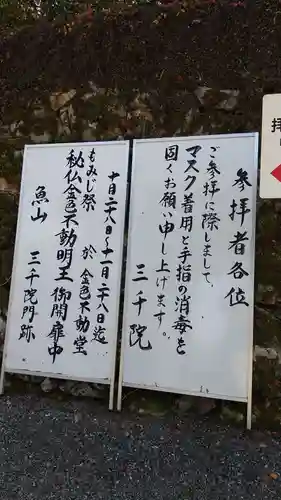 参拝者各位
ご参拝に際しまして、
マスク着用と手指の消毒を
固くお願い申し上げます。
三千院
拝
十月二十八日〜十一月二十八日迄
もみじ祭 於 金色不動堂
秘仏金色不動明王御開扉中
魚山 三千院門跡